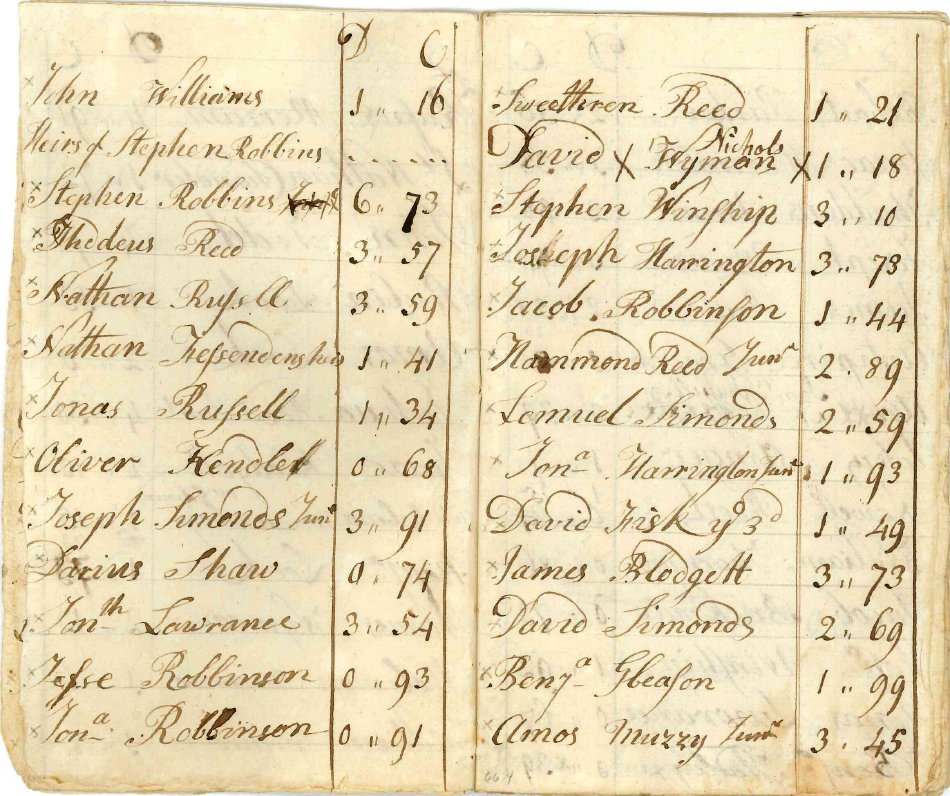 D C
John Williams 1 " 16
Heirs of Stephen Robbins
Stephen Robbins 6 " 73
Thedeus Reed 3 " 57
Nathan Russell 3 " 59
Nathan Fessendens heirs 1 " 41
Jonas Russell 1 " 34
Oliver Kendler 0 " 68
Joseph Simonds Junr 3 " 91
Darius Shaw 0 " 74
Jonth Lawrance 3 " 54
Jesse Robbinson 0 " 93
Jona Robbinson 0 " 91
Sweethren Reed 1 " 21
Nichols
David X Wyman X 1 " 18
Stephen Winship 3 " 10
Joseph Harrington 3 " 73
Jacob Robbinson 1 " 44
Hammond Reed Junr 2 " 89
Lemuel Simonds 2 " 59
Jona Harrington Junr 1 " 93
David Fisk ye 3d 1 " 49
James Blodgett 3 " 73
David Simonds 2 " 69
Benja Gleason 1 " 99
Amos Muzzy Junr 3 " 45